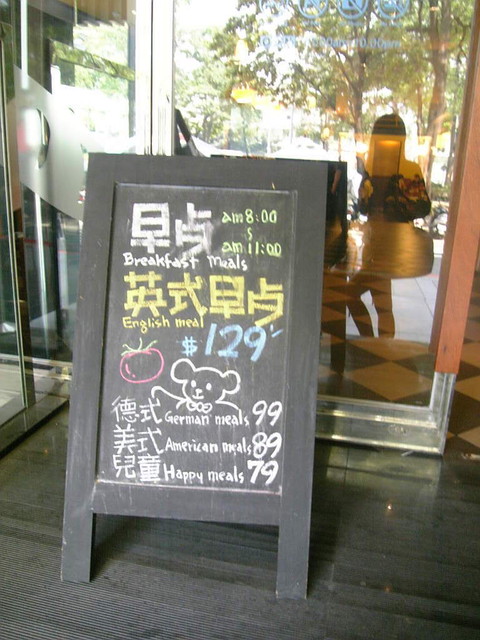 早点
am 8:00
s
am 11:00
Breakfast Meals
英式早点
English meal
$129-
德式 German meals 99
美式 American meals 89
兒童 Happy meals 79